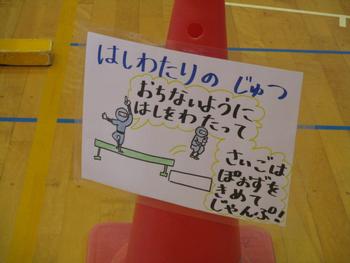 はしわたりの じゅつ
おちないように
はしをわたって
さいごは
ぽおずを
きめて
じゃんぷ!